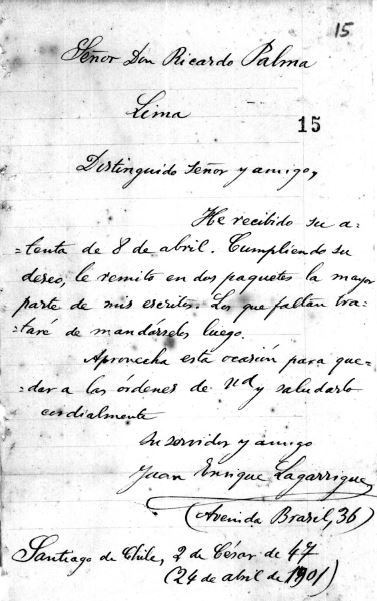 15
Señor Don Ricardo Palma
Lima
15
Distinguido Señor y amigo,
He recibido su a-
-tenta de 8 de abril. Cumpliendo su
deseo, le remito en dos paquetes la mayor
parte de mis escritos. Los que faltan tra-
-taré de mandárselos luego.
Aprovecha esta ocasión para que-
-dar a las órdenes de Ud y saludarlo
cordialmente
Su servidor y amigo
Juan Enrique Lagarrigue
(Avenida Brasil, 36)
Santiago de Chile, 2 de César de 47
(24 de abril de 1901)